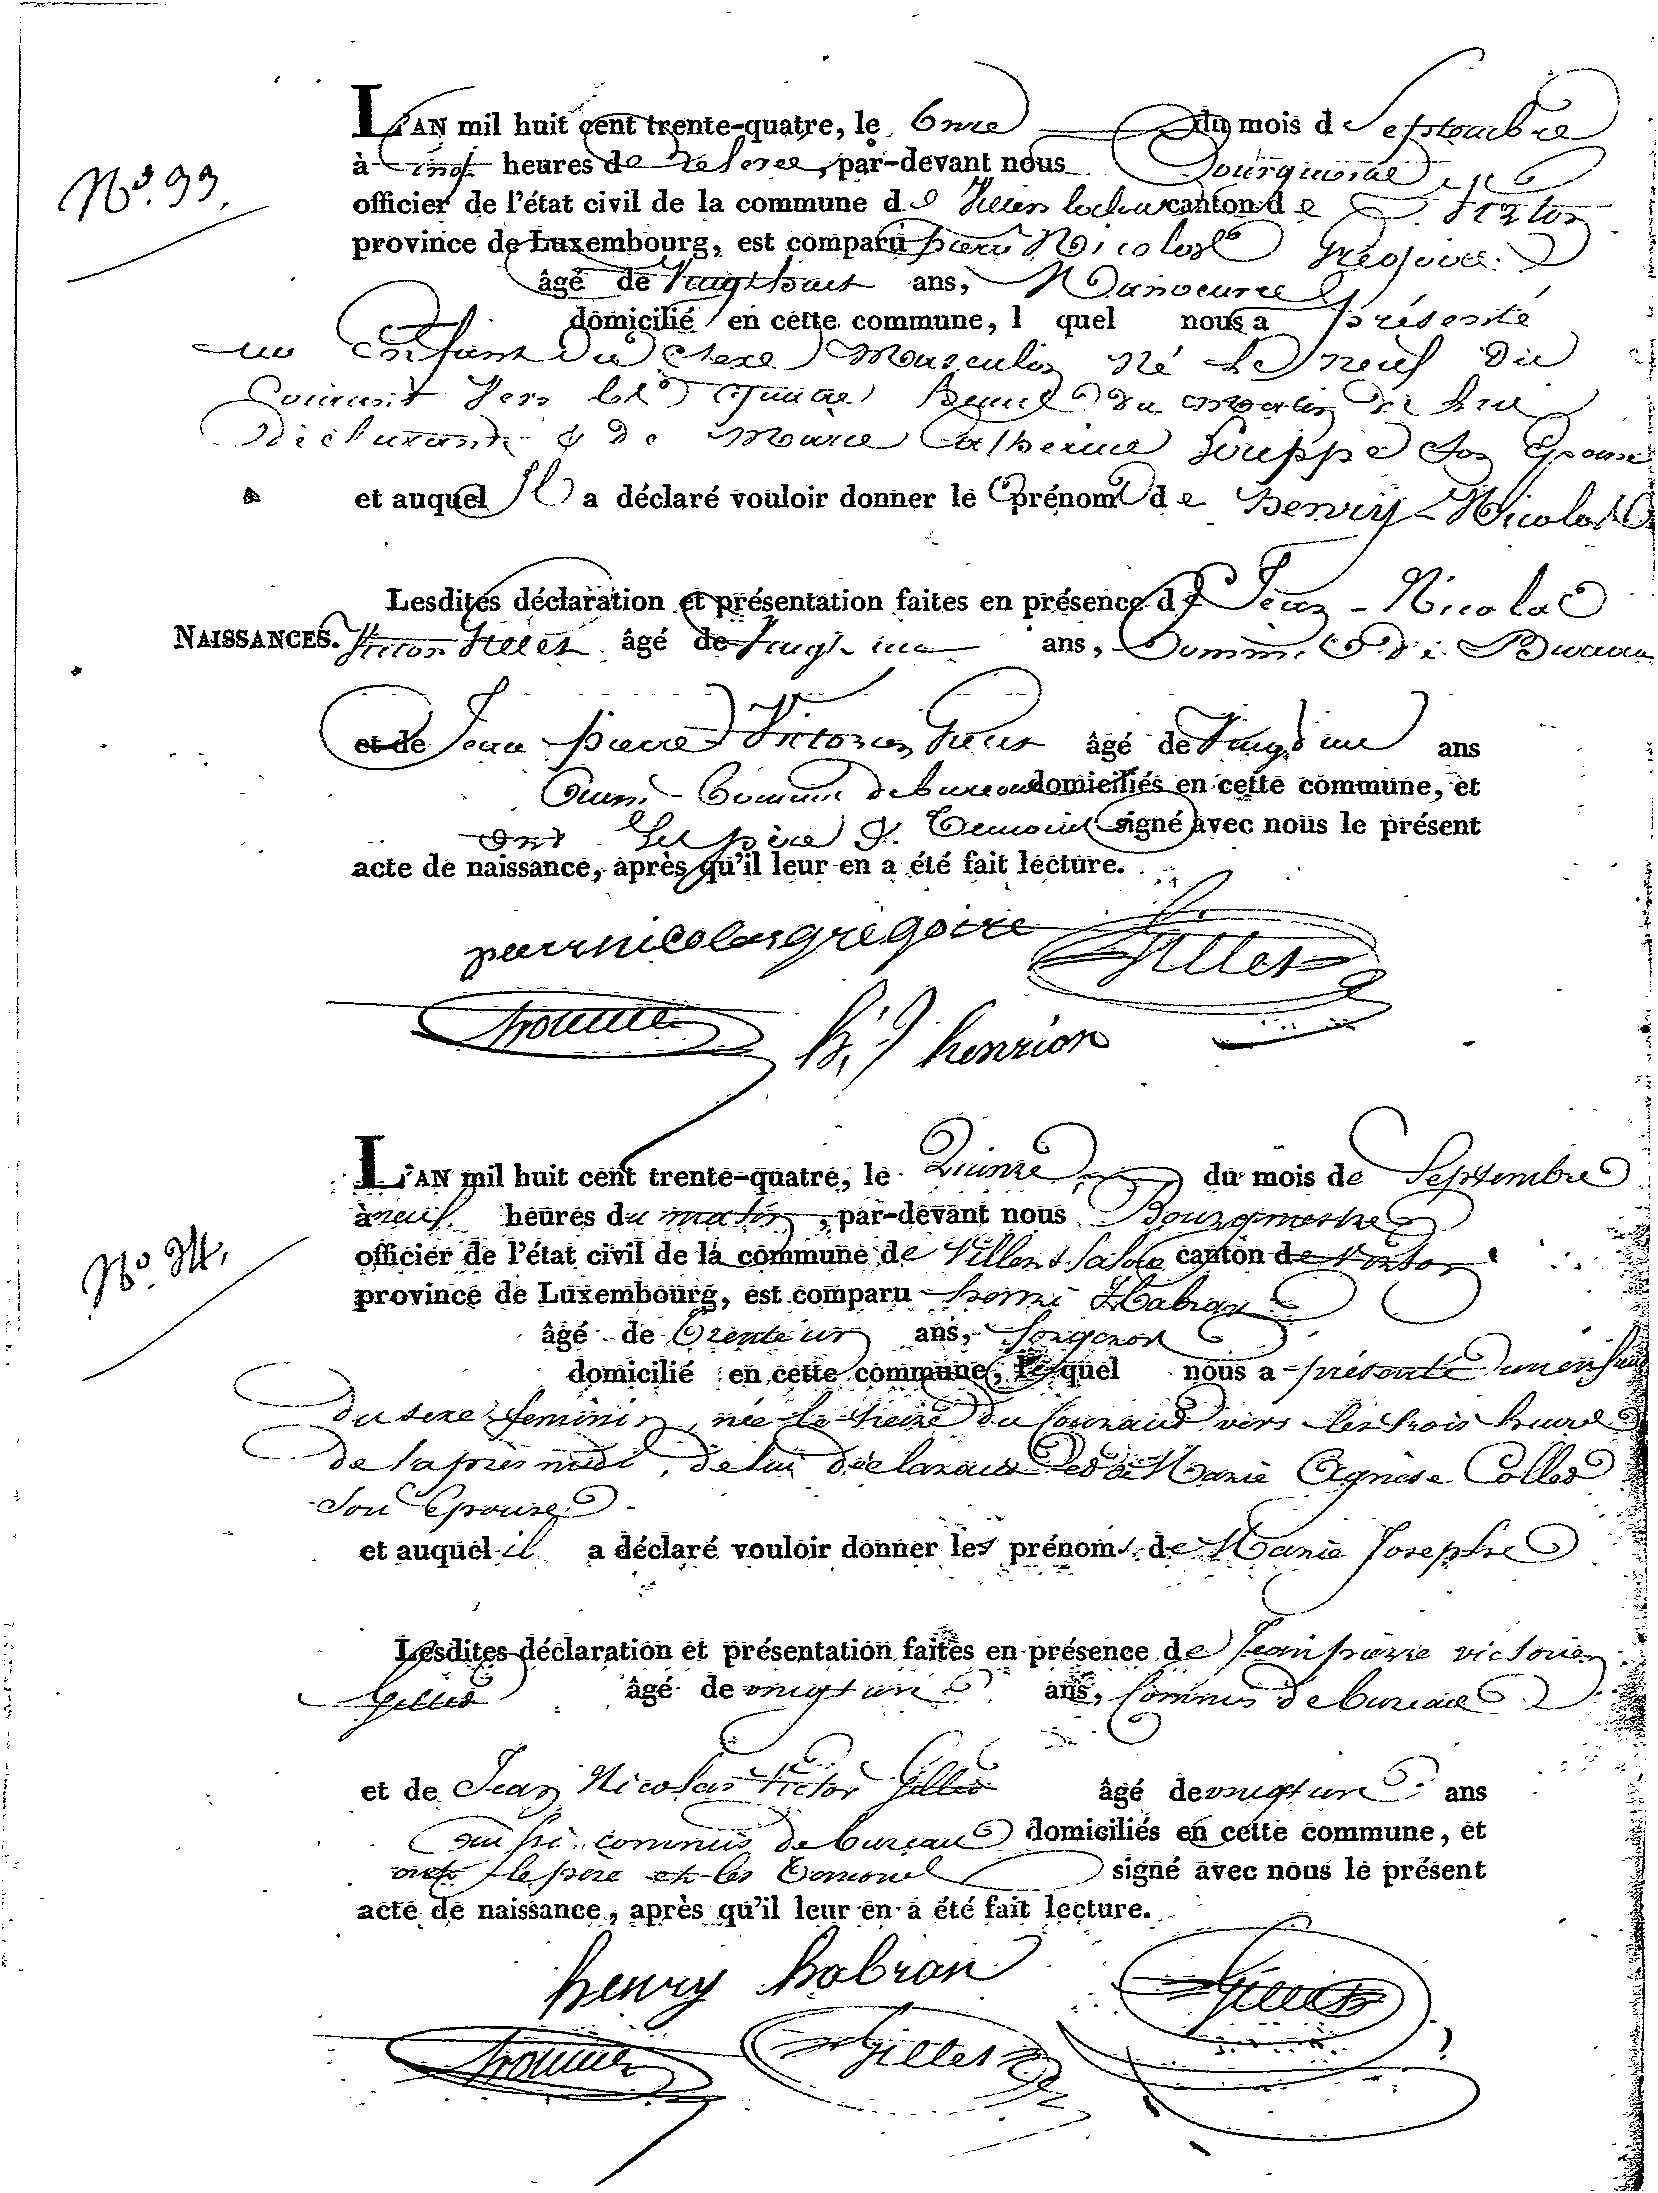 L'AN mil huit cent trente-quatre, le du mois de Septembre
N° 33.
à Cinq heures de relevée, par-devant nous Bourgmestre
officier de l'état civil de la commune de canton de Virton
province de Luxembourg, est comparu pierre Nicolas Grégoire
âgé de Vingt huit ans, Manoeuvre
domicilié en cette commune, l quel nous a présenté
un Enfant du Sexe Masculin Né Le neuf du
Courant Vers les quatre heures du matin de lui
déclarant & de Marie Catherine son Epouse
et auquel Il a déclaré vouloir donner le prénom de henry-Nicolas
Lesdites déclaration et présentation faites en présence de Jean-Nicolas
NAISSANCES. Victor Gillet âgé de Vingt un ans, Commis de Bureau
et de Jean pierre Victorien Gillet âgé de Vingt un ans
aussi Commis de bureau domiciliés en cette commune, et
ont Les père & Temoins signé avec nous le présent
acte de naissance, après qu'il leur en a été fait lecture.
pierrenicolasgregoire Gillet
h. J henrion
L'AN mil huit cent trente-quatre, le Quinze du mois de Septembre
à neuf heures du matin, par-devant nous Bourgmestre
N° 34.
officier de l'état civil de la commune de canton de Virton
province de Luxembourg, est comparu henri Habran
âgé de trente un ans, forgeron
domicilié en cette commune, lequel nous a présenté un enfant
du sexe feminin, née le treize du Courant vers les trois heures
de laprès midi, de lui déclarant et de Marie Agnès Collet
Son Epouse
et auquel il a déclaré vouloir donner les prénoms de Marie Josephe
Lesdites déclaration et présentation faites en présence de Jean pierre victorien
Gillet âgé de vingt un ans, Commis de bureau
et de Jean Nicolas Victor Gillet âgé de vingt un ans
aussi commis de bureau domiciliés en cette commune, et
ont le père et les Temoins signé avec nous le présent
acte de naissance, après qu'il leur en a été fait lecture.
henry habran Gillet
Gillet